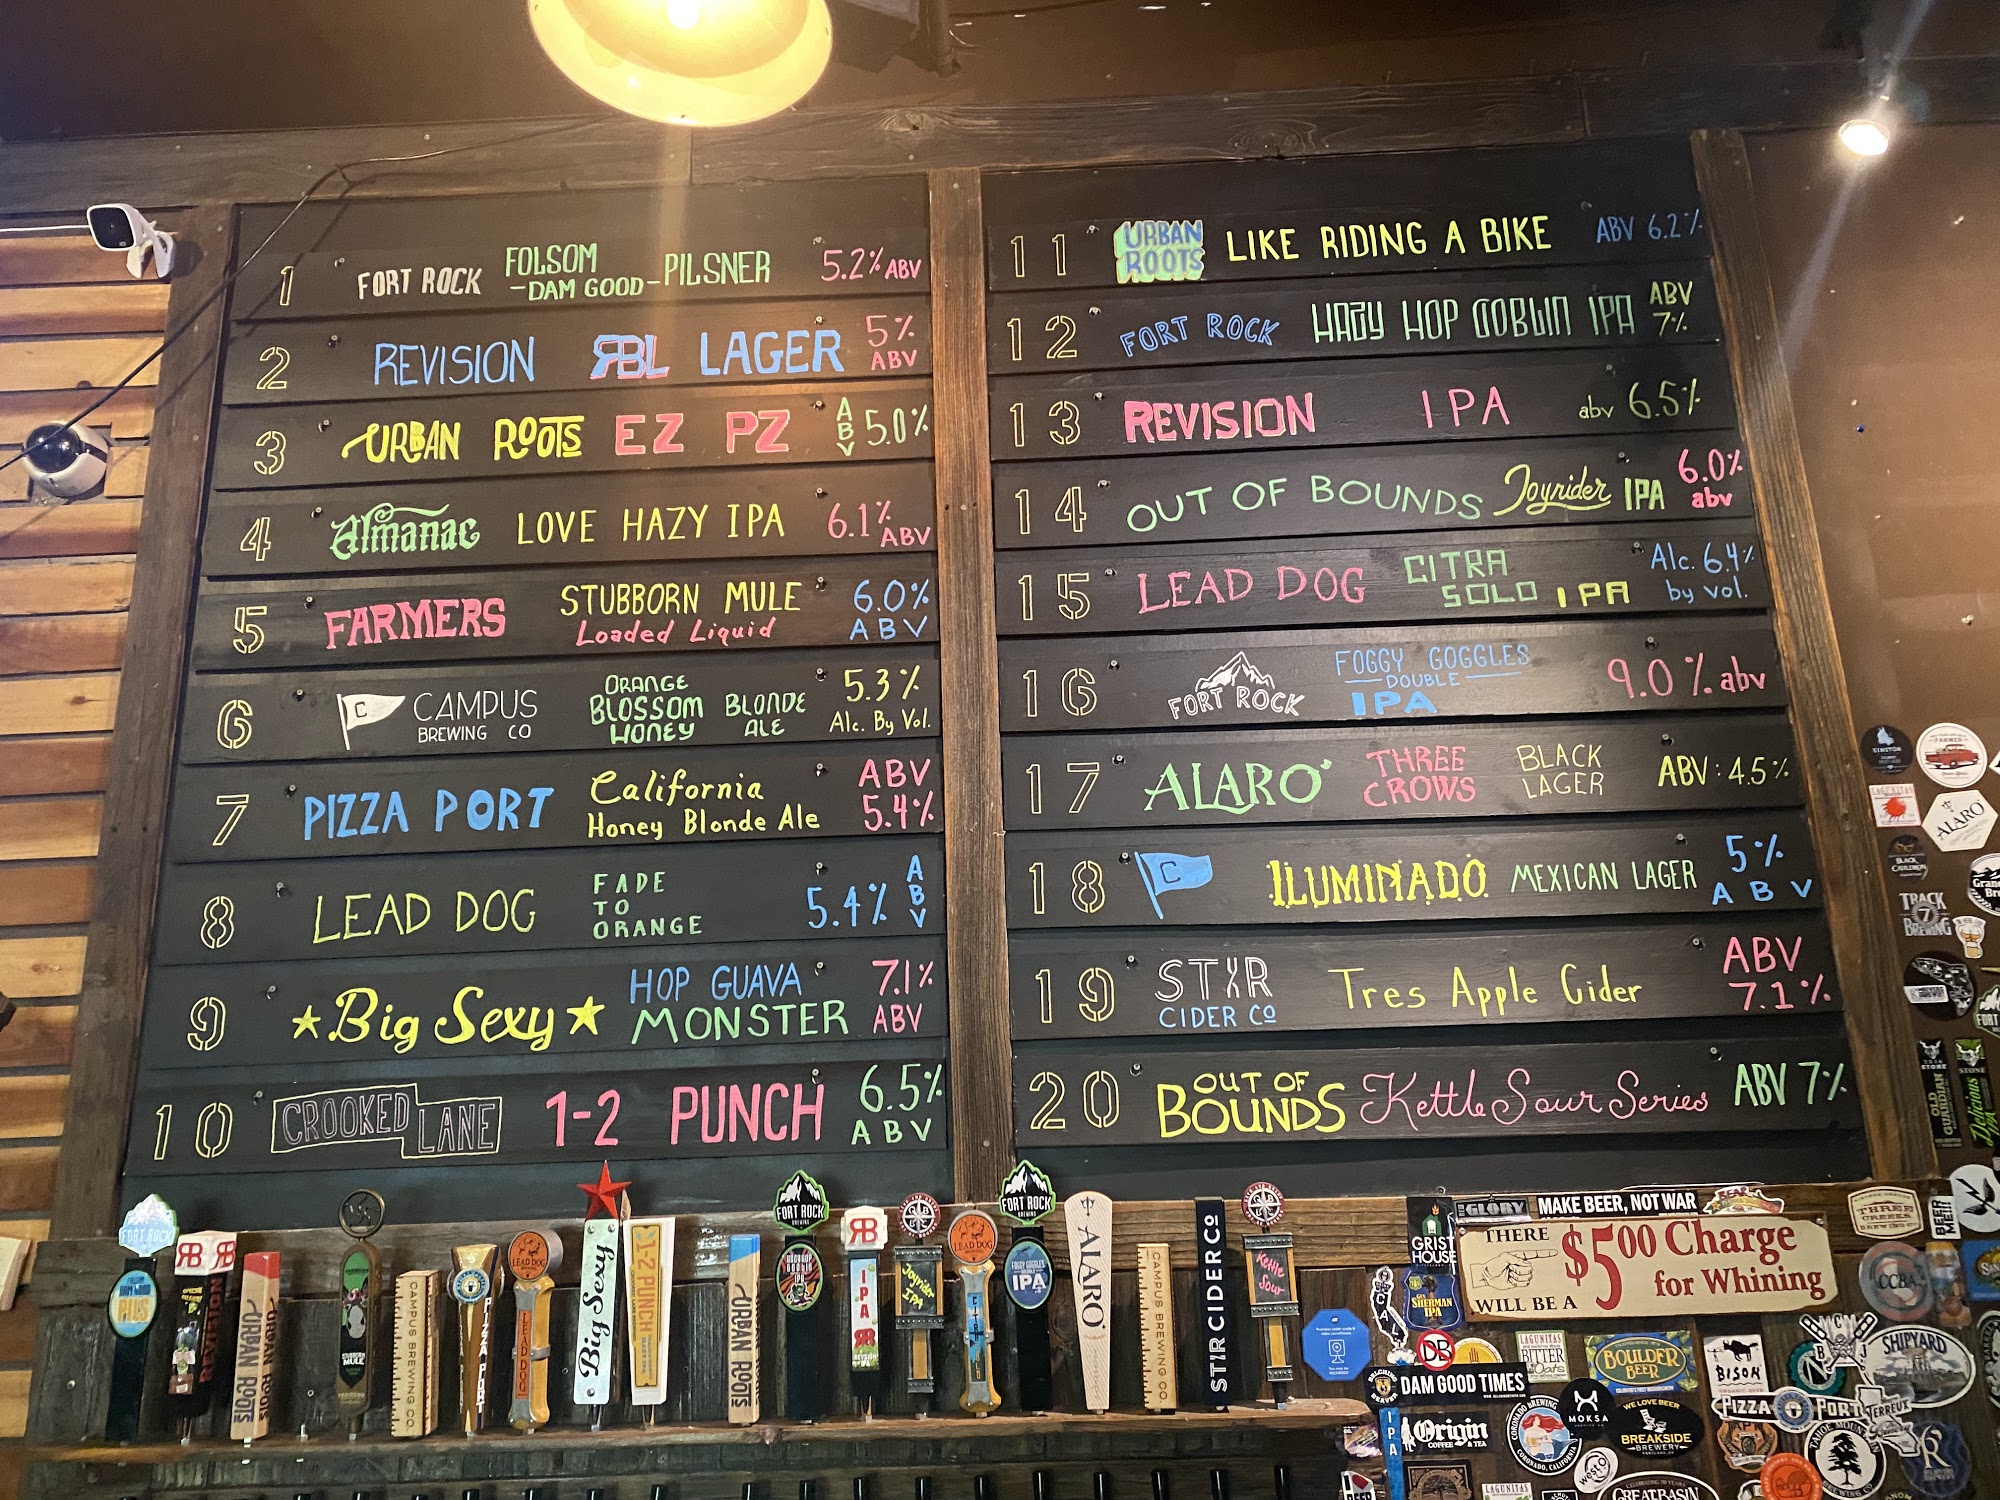 1 FORT ROCK FOLSOM -DAM GOOD- PILSNER 5.2% ABV
2 REVISION RBL LAGER 5% ABV
3 URBAN ROOTS EZ PZ ABV 5.0%
4 Almanac LOVE HAZY IPA 6.1% ABV
5 FARMERS STUBBORN MULE Loaded Liquid 6.0% ABV
6 C CAMPUS BREWING CO ORANGE BLOSSOM HONEY BLONDE ALE 5.3% Alc. By Vol.
7 PIZZA PORT California Honey Blonde Ale ABV 5.4%
8 LEAD DOG FADE TO ORANGE 5.4% ABV
9 Big Sexy HOP GUAVA MONSTER 7.1% ABV
10 CROOKED LANE 1-2 PUNCH 6.5% ABV
11 URBAN ROOTS LIKE RIDING A BIKE ABV 6.2%
12 FORT ROCK HAZY HOP GOBLIN IPA ABV 7%
13 REVISION IPA abv 6.5%
14 OUT OF BOUNDS Joyrider IPA 6.0% abv
15 LEAD DOG CITRA SOLO IPA Alc. 6.4% by vol.
16 FORT ROCK FOGGY GOGGLES DOUBLE IPA 9.0% abv
17 ALARO THREE CROWS BLACK LAGER ABV: 4.5%
18 C ILUMINADO MEXICAN LAGER 5% ABV
19 STIR CIDER CO Tres Apple Cider ABV 7.1%
20 OUT OF BOUNDS Kettle Sour Series ABV 7%
FORT ROCK
PILS
RB RB
REVISION
URBAN ROOTS
URBAN ROOTS
STUBBORN MULE
CAMPUS BREWING CO
PIZZA PORT
LEAD DOG
LEAD DOG
Big Sexy
1-2 PUNCH
URBAN ROOTS
FORT ROCK
BREWING
RB
IPA
RB
Joyrider IPA
LEAD DOG
FORT ROCK
BREWING
FOGGY GOGGLES
IPA
ALARO
CAMPUS BREWING CO
STIR CIDER CO
Kettle Sour
GLORY
MAKE BEER, NOT WAR
GRIST HOUSE
THERE WILL BE A $5.00 Charge for Whining
SHERMAN IPA
CAL
DB
LAGUNITAS
BITTER
BOULDER BEER
BISON
SHIPYARD
DAM GOOD TIMES
IPA
Origin
COFFEE & TEA
CORONADO BREWING
CORONADO, CALIFORNIA
MOKSA
WE LOVE BEER
BREAKSIDE
BREWERY
PIZZA PORT
TERREUX
TAHOE MOUNTAIN
westo
LAGUNITAS
GREAT BASIN
THREE CREEKS
BREWING CO
BEER MEN
CCBA
FARMER
LAGUNITAS
ALARO
BLACK CAULDRON
TRACK 7 BREWING
STONE
OLD GUARDIAN
STONE
Delicious IPA